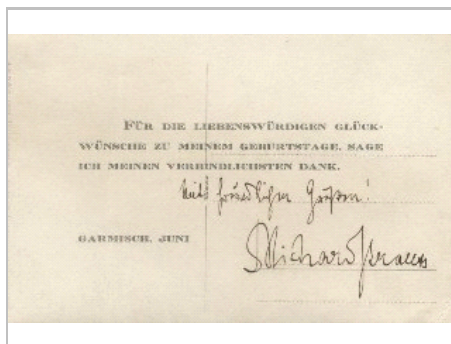 FÜR DIE LIEBENSWÜRDIGEN GLÜCK-
WÜNSCHE ZU MEINEM GEBURTSTAGE, SAGE
ICH MEINEN VERBINDLICHSTEN DANK.
Mit freundlichen Grüßen!
GARMISCH, JUNI
Richard Strauss